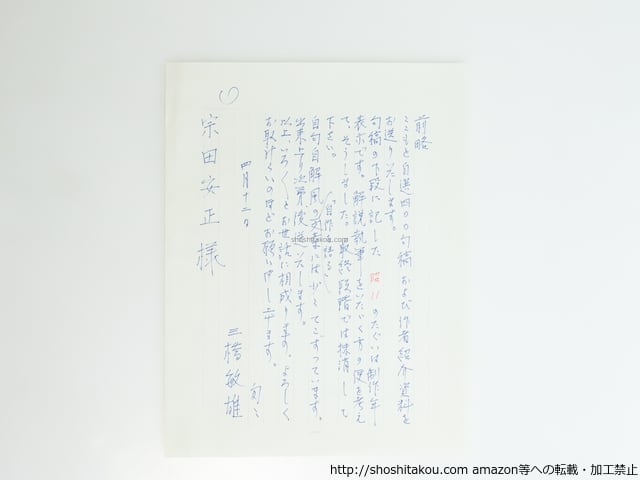 前略
ここもと自選四〇〇句稿および作者紹介資料を
お送りいたします。
句稿の下段に記した 昭11 のたぐいは制作年
表示です。解説執筆をいただく方の便を考え
て、そうしました。最終段階では抹消して
下さい。
「自作を語る」
自句自解風の文章には少々てこずっています。
出来上り次第後送いたします。
以上、いろ〱とお世話に相成ります。よろしく
お取計らいのほどお願い申し上げます。
匆々
四月十二日
三橋敏雄
宗田安正様
shoshitakou.com
http://shoshitakou.com amazon等への転載・加工禁止